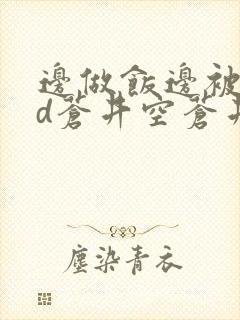 邊做飯邊被
d蒼井空蒼井
塵染青衣